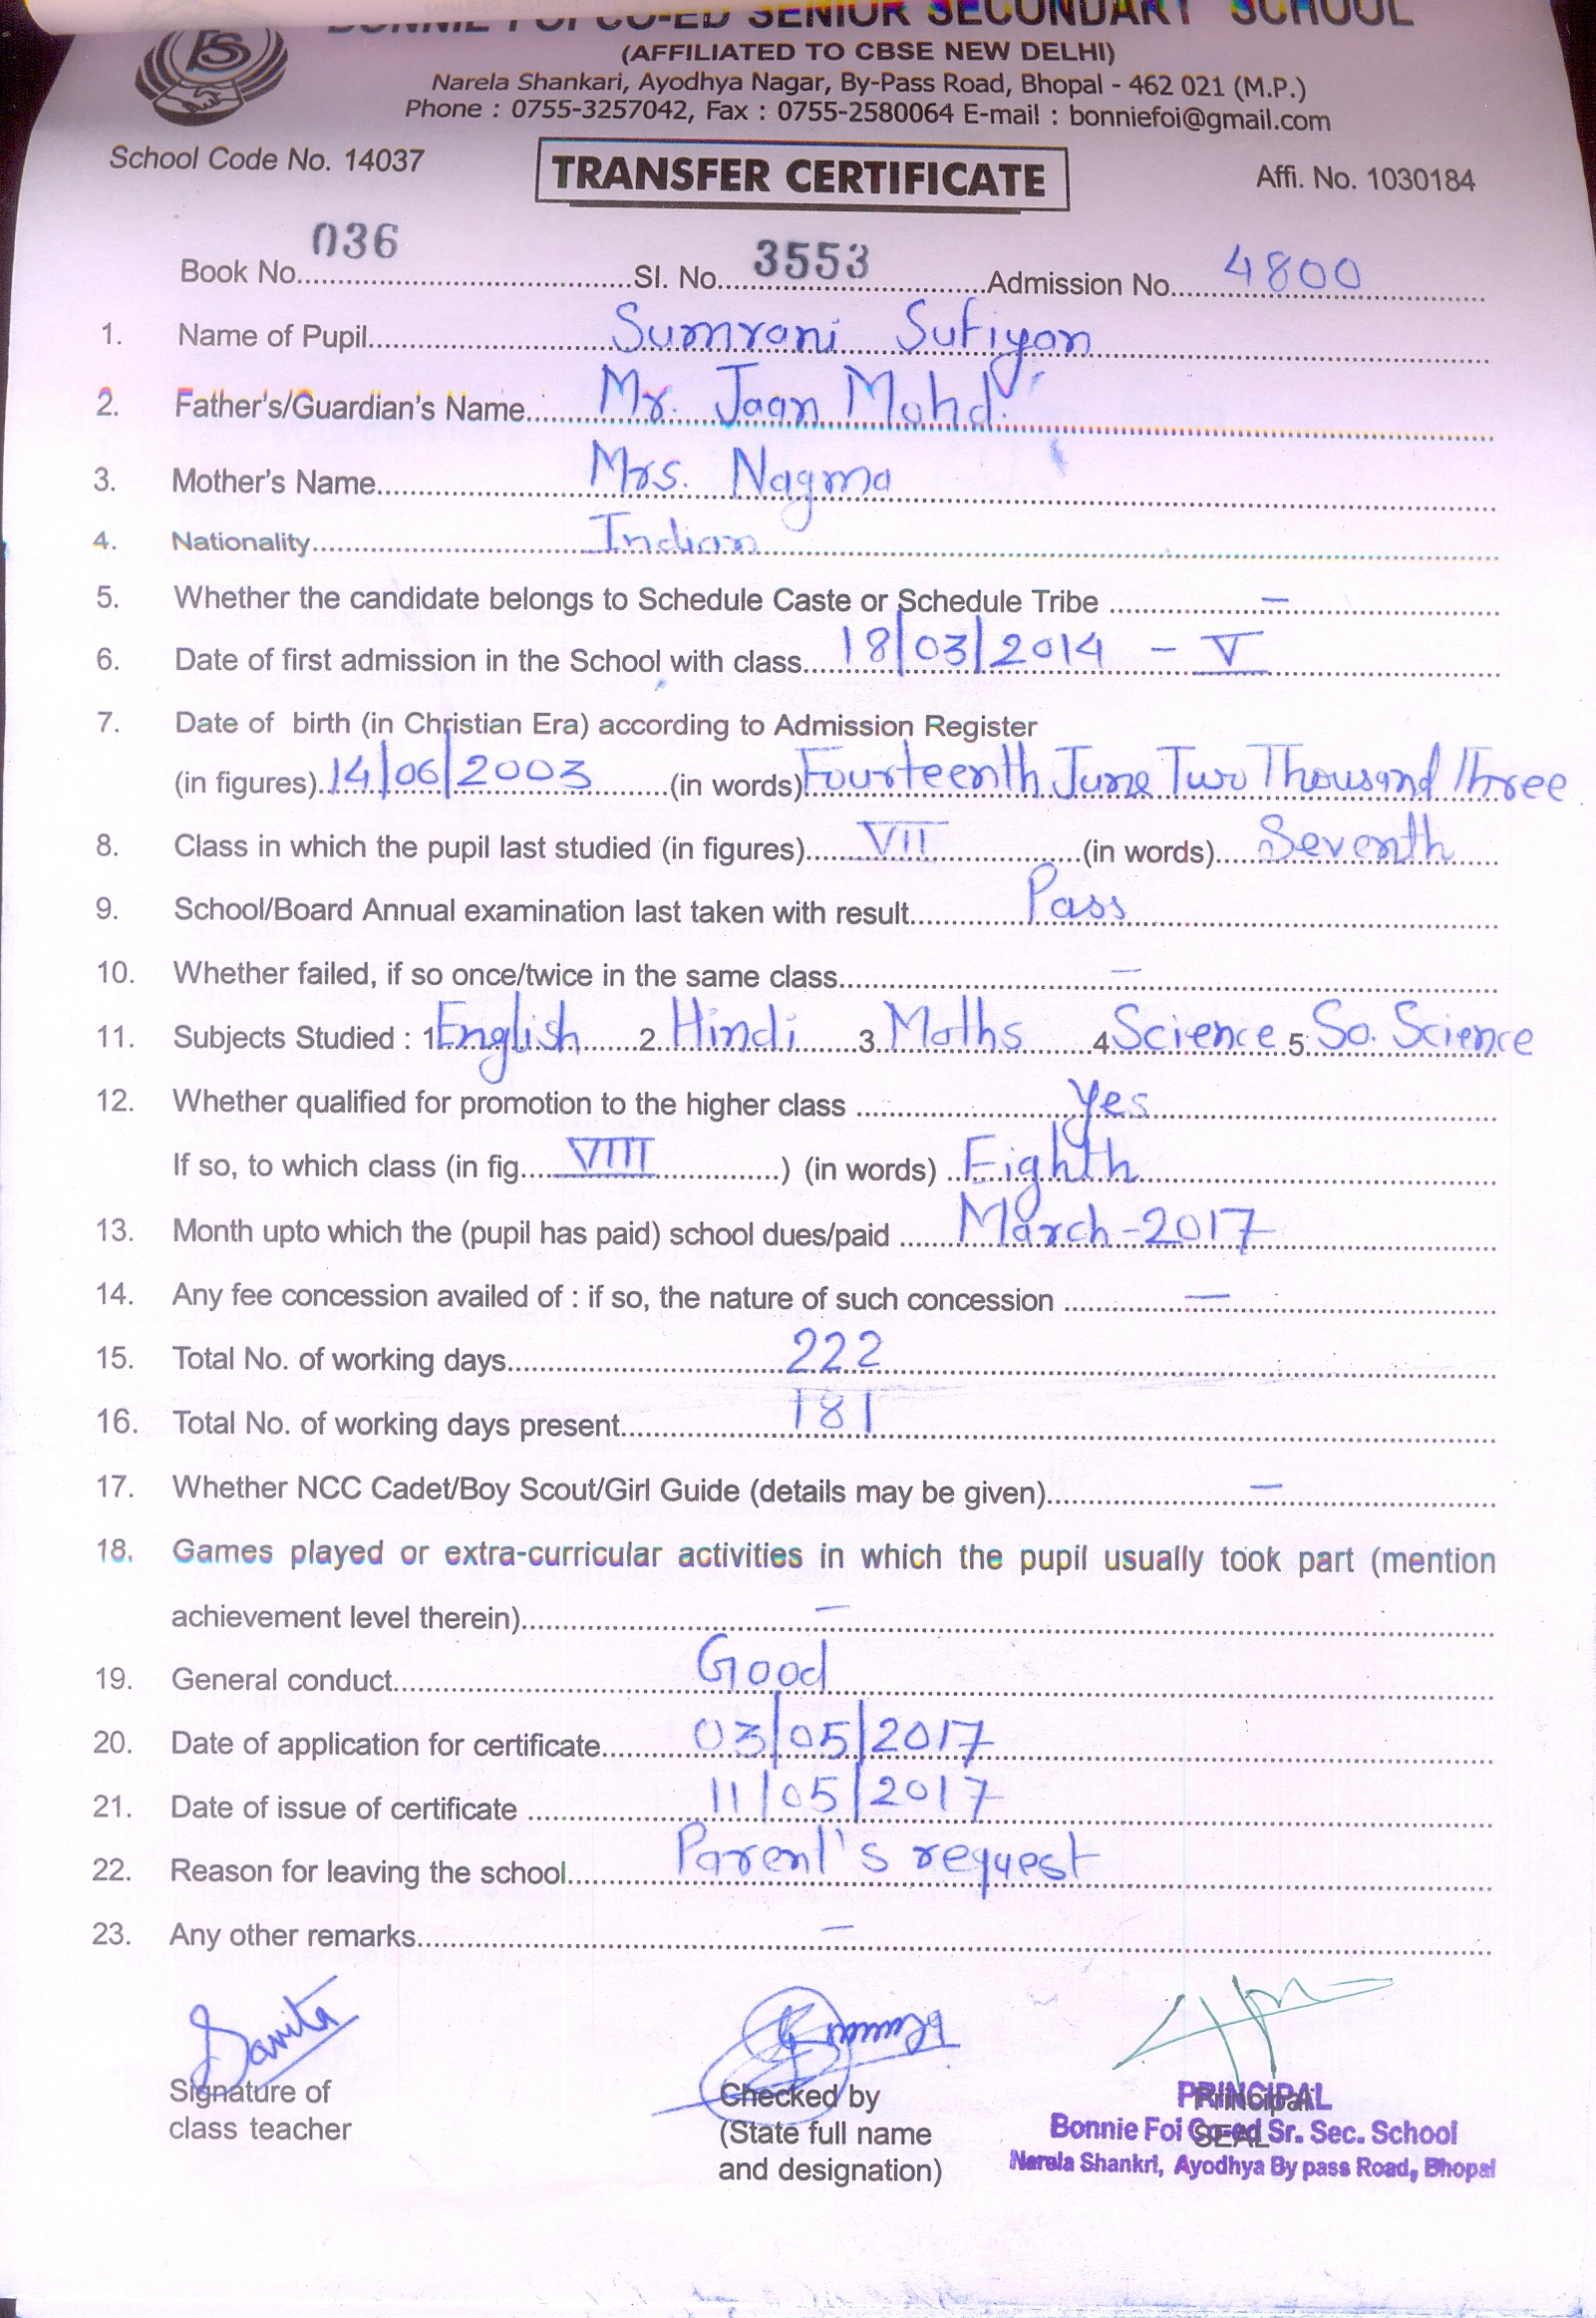 BONNIE FOI CO-ED SENIOR SECONDARY SCHOOL
(AFFILIATED TO CBSE NEW DELHI)
Narela Shankari, Ayodhya Nagar, By-Pass Road, Bhopal - 462 021 (M.P.)
Phone : 0755-3257042, Fax : 0755-2580064 E-mail : bonniefoi@gmail.com
School Code No. 14037 TRANSFER CERTIFICATE Affi. No. 1030184
Book No. 036 Sl. No. 3553 Admission No. 4800
1. Name of Pupil Sumrani Sufiyan
2. Father's/Guardian's Name Mr. Jaan Mohd.
3. Mother's Name Mrs. Nagma
4. Nationality Indian
5. Whether the candidate belongs to Schedule Caste or Schedule Tribe –
6. Date of first admission in the School with class 18/03/2014 - V
7. Date of birth (in Christian Era) according to Admission Register
(in figures) 14/06/2003 (in words) Fourteenth June Two Thousand Three
8. Class in which the pupil last studied (in figures) VII (in words) Seventh
9. School/Board Annual examination last taken with result Pass
10. Whether failed, if so once/twice in the same class –
11. Subjects Studied : 1 English 2. Hindi 3 Maths 4 Science 5 So. Science
12. Whether qualified for promotion to the higher class Yes
If so, to which class (in fig. VIII ) (in words) Eighth
13. Month upto which the (pupil has paid) school dues/paid March-2017
14. Any fee concession availed of : if so, the nature of such concession –
15. Total No. of working days 222
16. Total No. of working days present 181
17. Whether NCC Cadet/Boy Scout/Girl Guide (details may be given) –
18. Games played or extra-curricular activities in which the pupil usually took part (mention
achievement level therein) –
19. General conduct Good
20. Date of application for certificate 03/05/2017
21. Date of issue of certificate 11/05/2017
22. Reason for leaving the school Parent's request
23. Any other remarks –
Signature of
class teacher
Checked by
(State full name
and designation)
Principal
SEAL
PRINCIPAL
Bonnie Foi Co-ed Sr. Sec. School
Narela Shankri, Ayodhya By pass Road, Bhopal